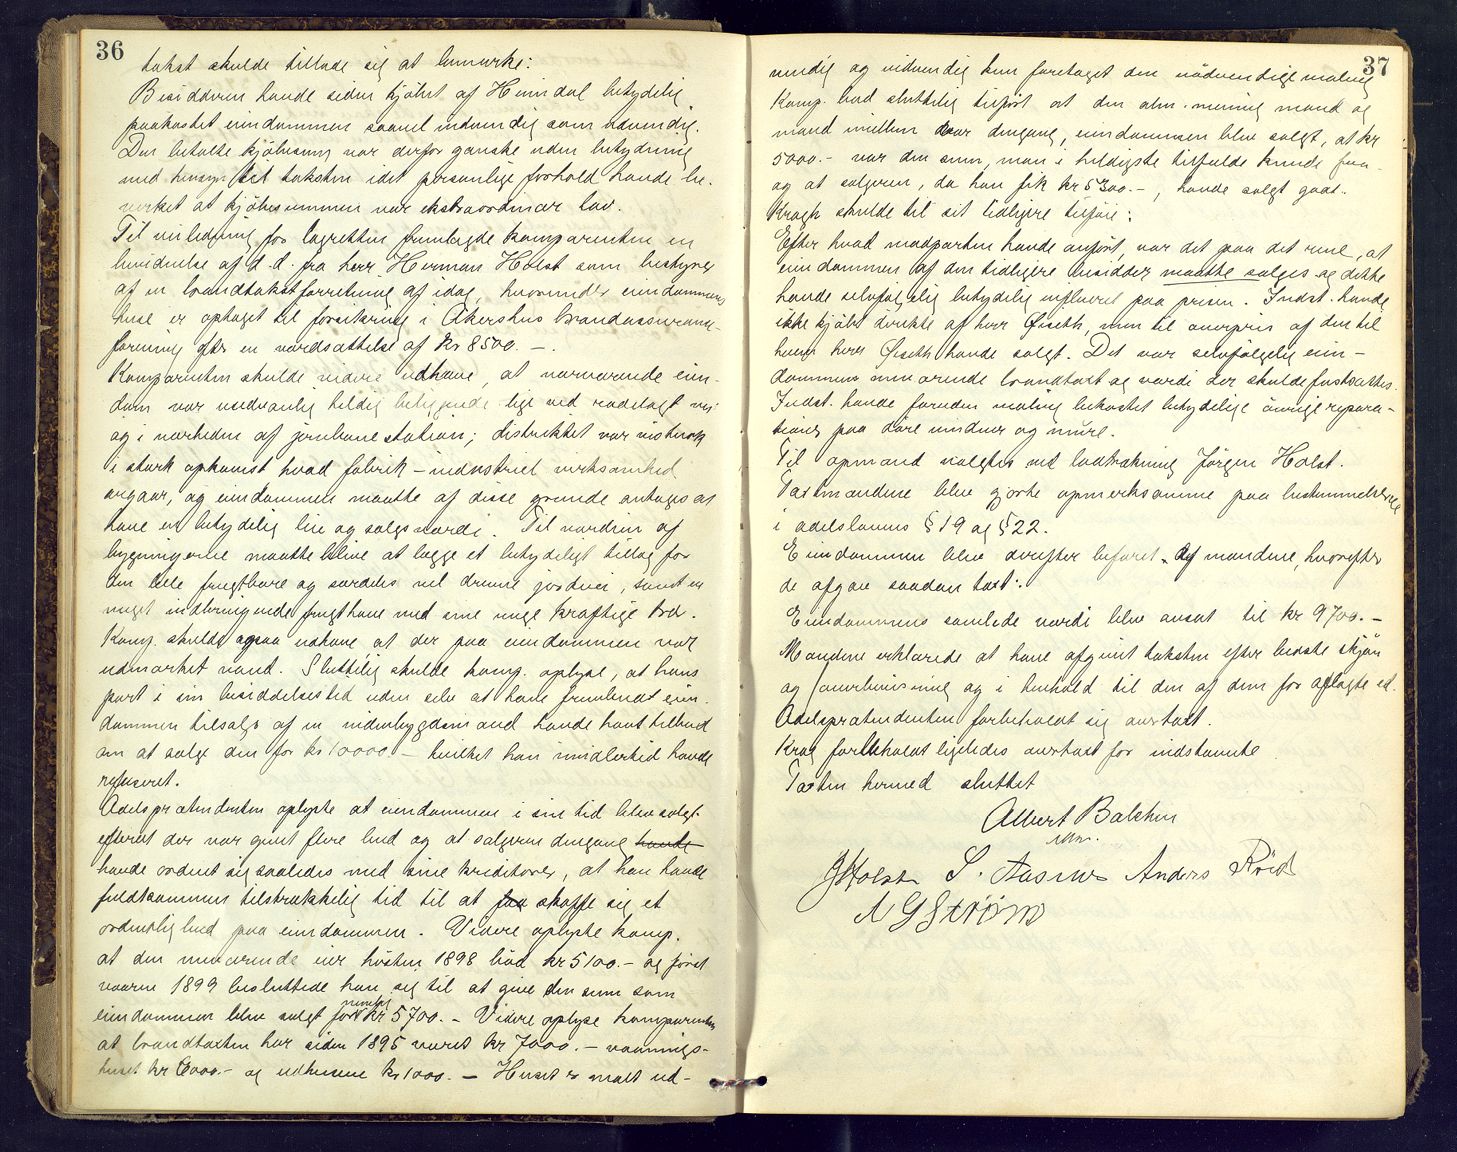 36
takst skulde tillade sig at bemærke:
Besidderen havde siden kjøbet af Heimdal betydelig
paakostet eiendommen saavel indvendig som udvendig.
Den betalte kjøbesum var derfor ganske uden betydning
med hensyn til taksten idet personlige forhold havde be-
virket at kjøbesummen var ekstraordinær lav.
Til veiledning for lagretten fremlagde komparenten en
bevidnelse af d.d. fra herr Herman Holst som bestyrer
af en brandtakstforretning af idag, hvorunder eiendommens
huse er optaget til forsikring i Akershus brandassurance-
forening efter en værdsættelse af kr 8500. –.
Komparenten skulde videre udhæve, at nærværende eien-
dom var usædvanlig heldig beliggende lige ved rodelagt vei
og i nærheden af jernbanestation; distriktet var
i stærk opkomst hvad fabrik-industriel virksomhed
angaar, og eiendommen maatte af disse grunde antages at
have en betydelig leie og salgsværdi. Til værdien af
bygningerne maatte blive at lægge et betydeligt tillæg for
den lille frugtbare og særdeles vel drevne jordvei, samt en
meget indbringende frugthave med sine unge kraftige trær.
Komp. skulde ogsaa udhæve at der paa eiendommen var
udmærket vand. Sluttelig skulde komp. oplyse, at hans
part i sin besiddelsestid uden selv at have frembudt eien-
dommen tilsalgs af en udenbygdsmand havde havt tilbud
om at sælge den for kr 10000 – hvilket han imidlertid havde
refuseret.
Odelsprætendenten oplyste at eiendommen i sin tid blev solgt
efterat der var gjort flere bud og at sælgeren dengang havde
havde ordnet sig saaledes med sine kreditorer, at han havde
fuldkommen tilstrækkelig tid til at faa skaffe sig et
ordentlig bud paa eiendommen. Videre oplyste komp.
at den nuværende eier høsten 1898 bød kr 5100.– og først
vaaren 1899 besluttede han sig til at give den sum som
eiendommen blev solgt for nemlig kr 5700. – Videre oplyse komparenten
at brandtaxten har siden 1895 været kr 7000. – vaanings-
huset kr 6000.– og udhusene kr 1000. – Huset er malt ud-
37
vendig og indvendig kun foretaget den nødvendige maling
Komp. bad sluttelig tilført at den alm. mening mand og
mand imellem var dengang, eiendommen blev solgt, at kr
5000.– var den sum, man i heldigste tilfælde kunde faa
og at sælgeren, da han fik kr 5300.–, havde solgt godt.
Kragh skulde til sit tidligere tilføie:
Efter hvad modparten havde anført, var det paa det rene, at
eiendommen af den tidligere besidder maatte sælges og dette
havde selvfølgelig betydelig influeret paa prisen. Indst. havde
ikke kjøbt direkte af herr Øiseth, men til overpris af den til
hvem herr Øiseth havde solgt. Det var selvfølgelig eien-
dommens nuværende brandtaxt og værdi der skulde fastsættes.
Indst. havde foruden maling bekostet betydelige øvrige repara-
tioner paa døre vinduer og mure.
Til opmand valgtes ved lodtrækning Jørgen Holst.
Taxtmændene blev gjorte opmerksomme paa bestemmelserne
i odelslovens § 19 og § 22.
Eiendommen blev derefter befaret af mændene, hvorefter
de afgav saadan taxt:
Eiendommens samlede værdi blev ansat til kr 9700. –
Mændene erklærede at have afgivet taksten efter bedste skjøn
og overbevisning og i henhold til den af dem før aflagte ed.
Odelsprætendenten forbeholdt sig overtaxt.
Krag forbeholdt ligeledes overtaxt for indstævnte
Taxten hermed sluttet
Albert Balchen
JHolst S. Aasnes Anders Røid
A G Strøm